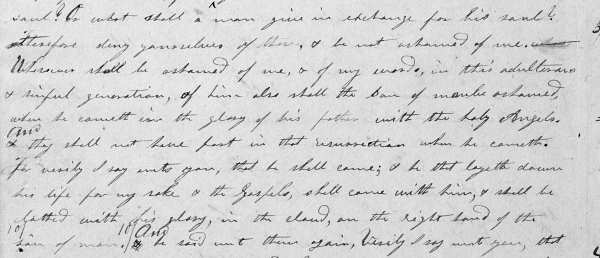 soul? Or what shall a man give in exchange for his soul?
therefore deny yourselves of these, & be not ashamed of me.
Whosoever shall be ashamed of me, & of my words, in this adulterous
& sinful generation, of him also shall the Son of man be ashamed,
when he cometh in the glory of his father with the holy Angels.
And
& they shall not have part in that resurrection when he cometh.
For verily I say unto you, that he shall come; & he that layeth down
his life for my sake & the Gospels, shall come with him, & shall be
clothed with his glory, in the cloud, on the right hand of the
Son of man. And & he said unto them again, Verily I say unto you, that